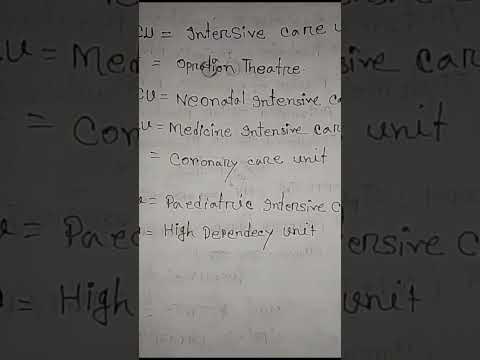 CU = Intensive care u
= Opration Theatre
CU = Neonatal Intensive ca
U = Medicine Intensive car
= Coronary care unit
u = Paediatric Intensive c
= High Dependecy unit